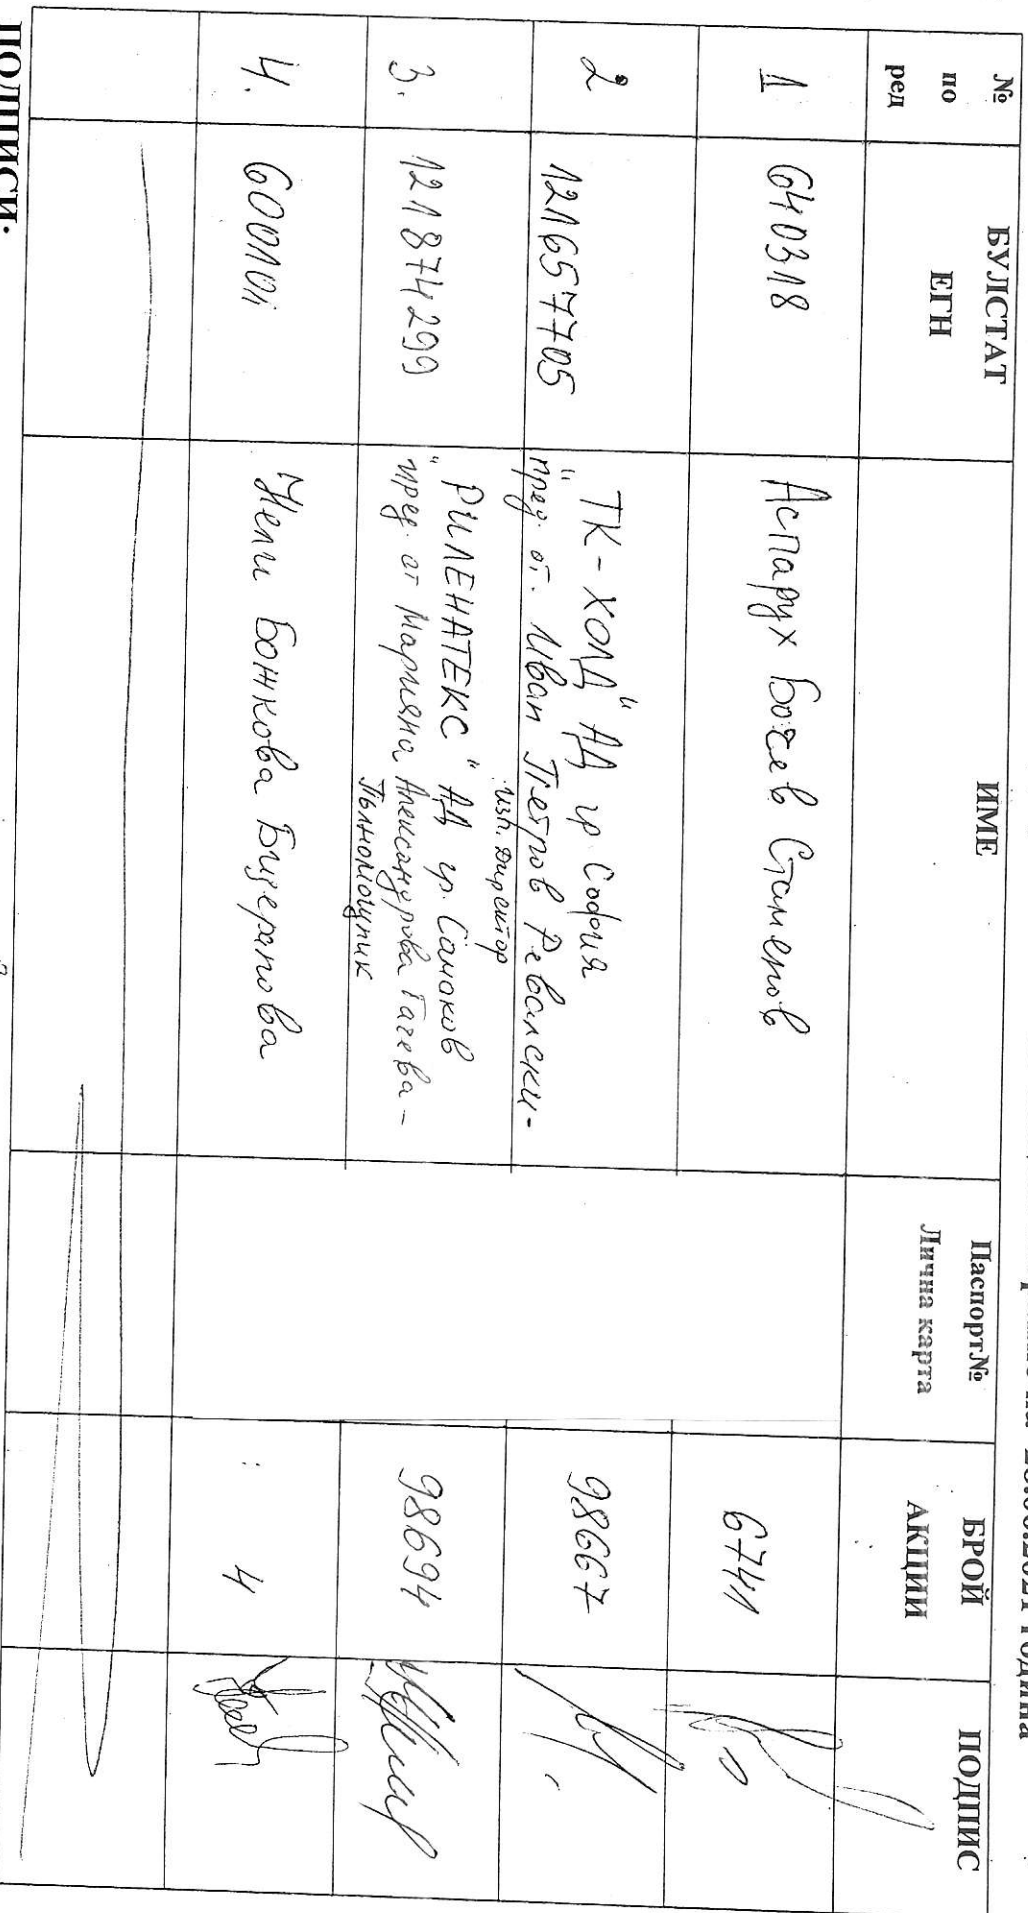 28.06.2021 година
№ по ред БУЛСТАТ ЕГН ИМЕ Паспорт№ Лична карта БРОЙ АКЦИИ ПОДПИС
1 640318 Аспарух Божев Стаменов 6741
2 121657705 "ТК-ХОЛД" АД гр. София 98667
пред. от. Иван Петров Ревалски-
изп. директор
3. 121874299 "РИЛЕНАТЕКС" АД гр. Самоков 98694
пред. от Марияна Александрова Гачева-
Пълномощник
4. 600101 Нели Божкова Бицерлова 4
ПОДПИСИ: